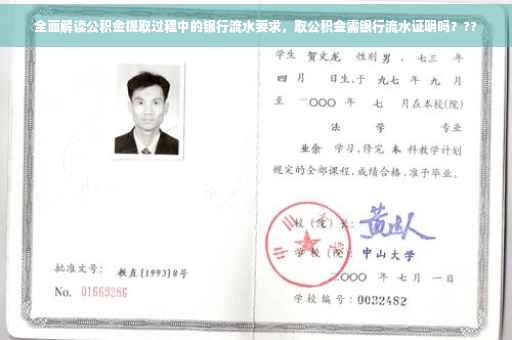 全面解读公积金提取过程中的银行流水要求，取公积金需银行流水证明吗？??
学生 贺文龙 性别 男 ，七三 年
四 月 日生，于 九七 年 九 月
至 二〇〇〇 年 七 月在本校(院)
法 学 专业
业余 学习，修完 本 科教学计划
规定的全部课程，成绩合格，准予毕业。
校（院）长：
学 校（院）： 中山大学
二〇〇〇 年 七 月 一 日
学校编号：0032482
批准文号： 教直[1993]8号
No. 01669286